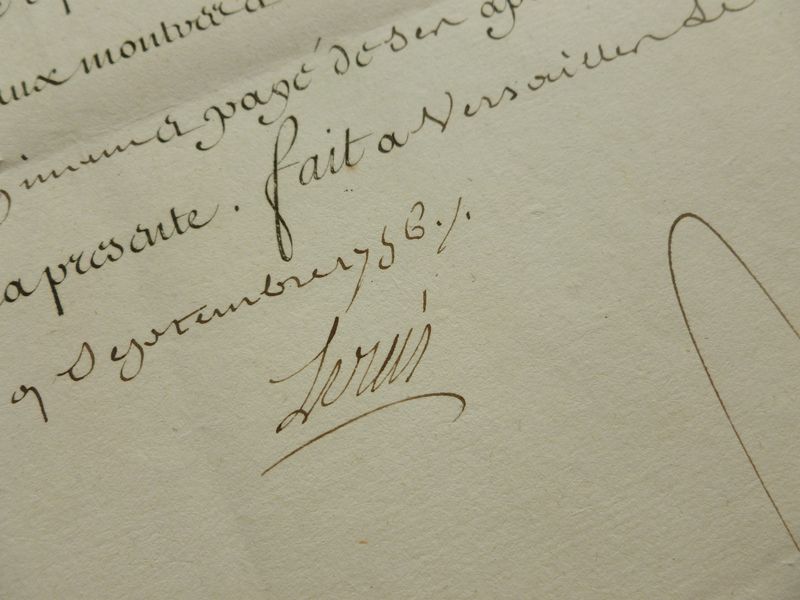 aux montrer a
a payé de ses ap
la presente. fait a Versailles Le
9 Septembre 1756./.
Louis